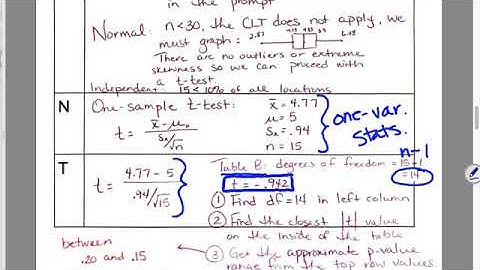 in the prompt
Normal: n<30, the CLT does not apply, we
must graph:
2.87
4.13
4.8
5.5
6.65
There are no outliers or extreme
skewness so we can proceed with
a t-test.
Independent: 15<10% of all locations
N
One-sample t-test:
x̄ = 4.77
μ = 5
Sx = .94
n = 15
t = x̄ - μ₀
Sx/√n
one-var.
stats.
T
t = 4.77 - 5
.94/√15
n-1
Table B: degrees of freedom = 15-1
= 14
t = -.942
① Find df = 14 in left column
② Find the closest |t| value
on the inside of the table
③ Get the approximate p-value
range from the top row values
between
.20 and .15